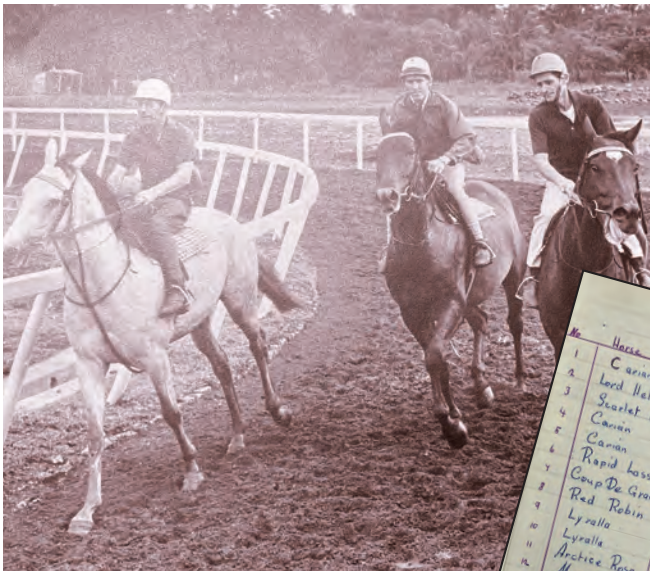 No Horse
1 Carian
2 Lord
3 Scarlet
4 Carian
5 Carian
6 Rapid
7 Coup De
8 Red Robin
9 Lyralla
10 Lyralla
11 Arctice Rose
12.